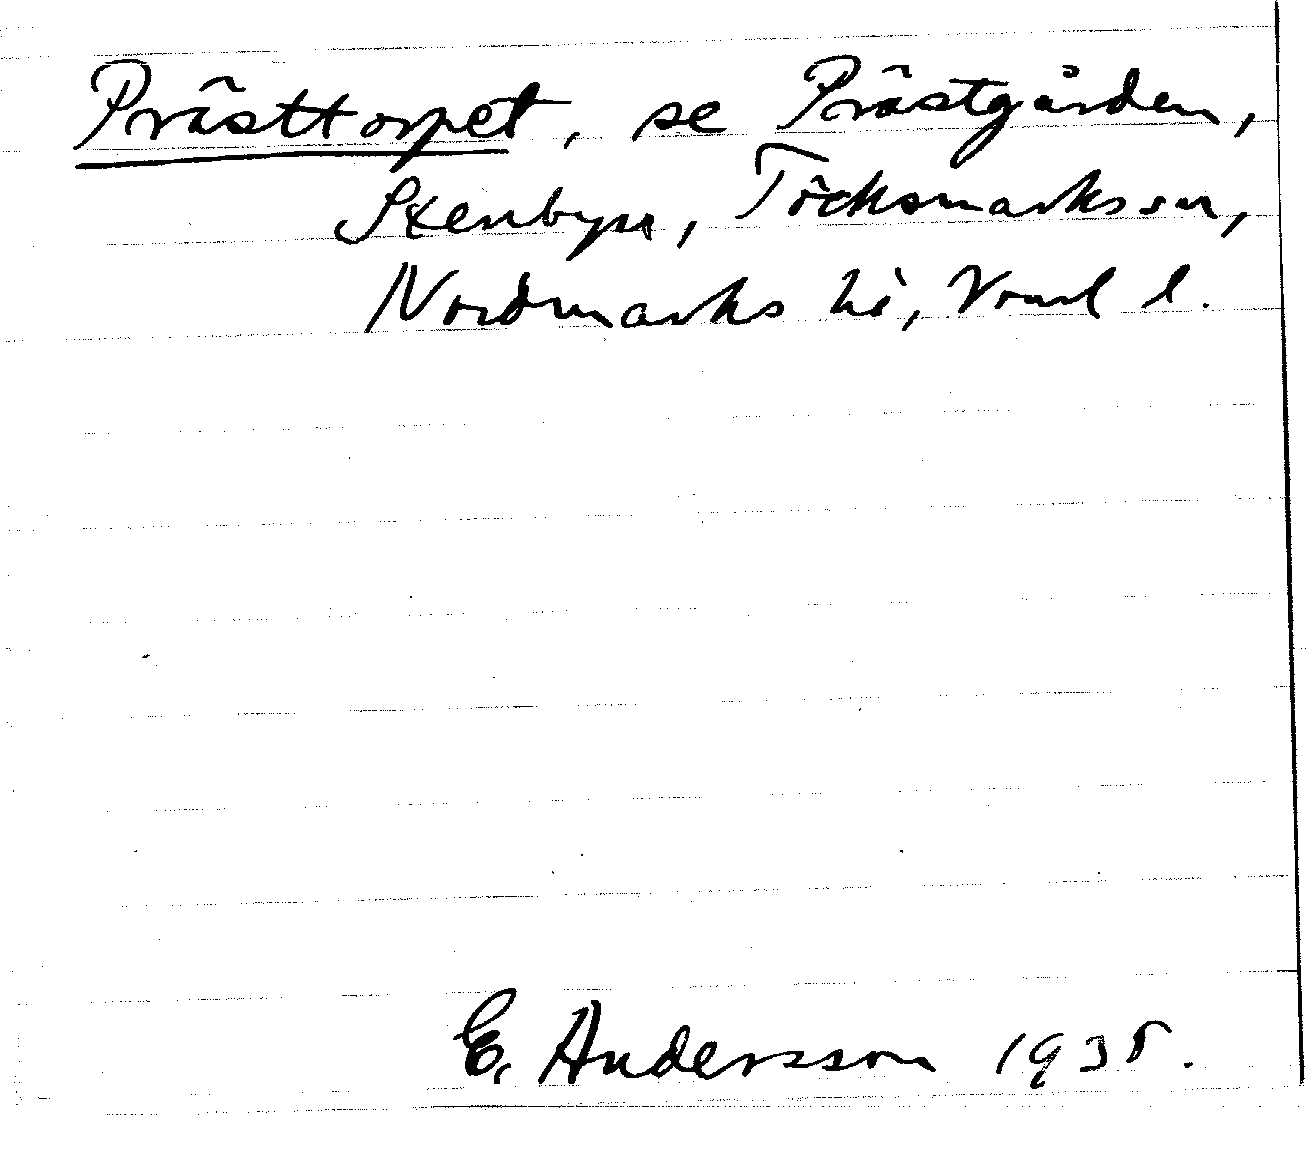 Prästtorpet, se Prästgården,
Stenbyn, Töcksmarks sn,
Nordmarks hd, Värml l.
E. Andersson 1935.